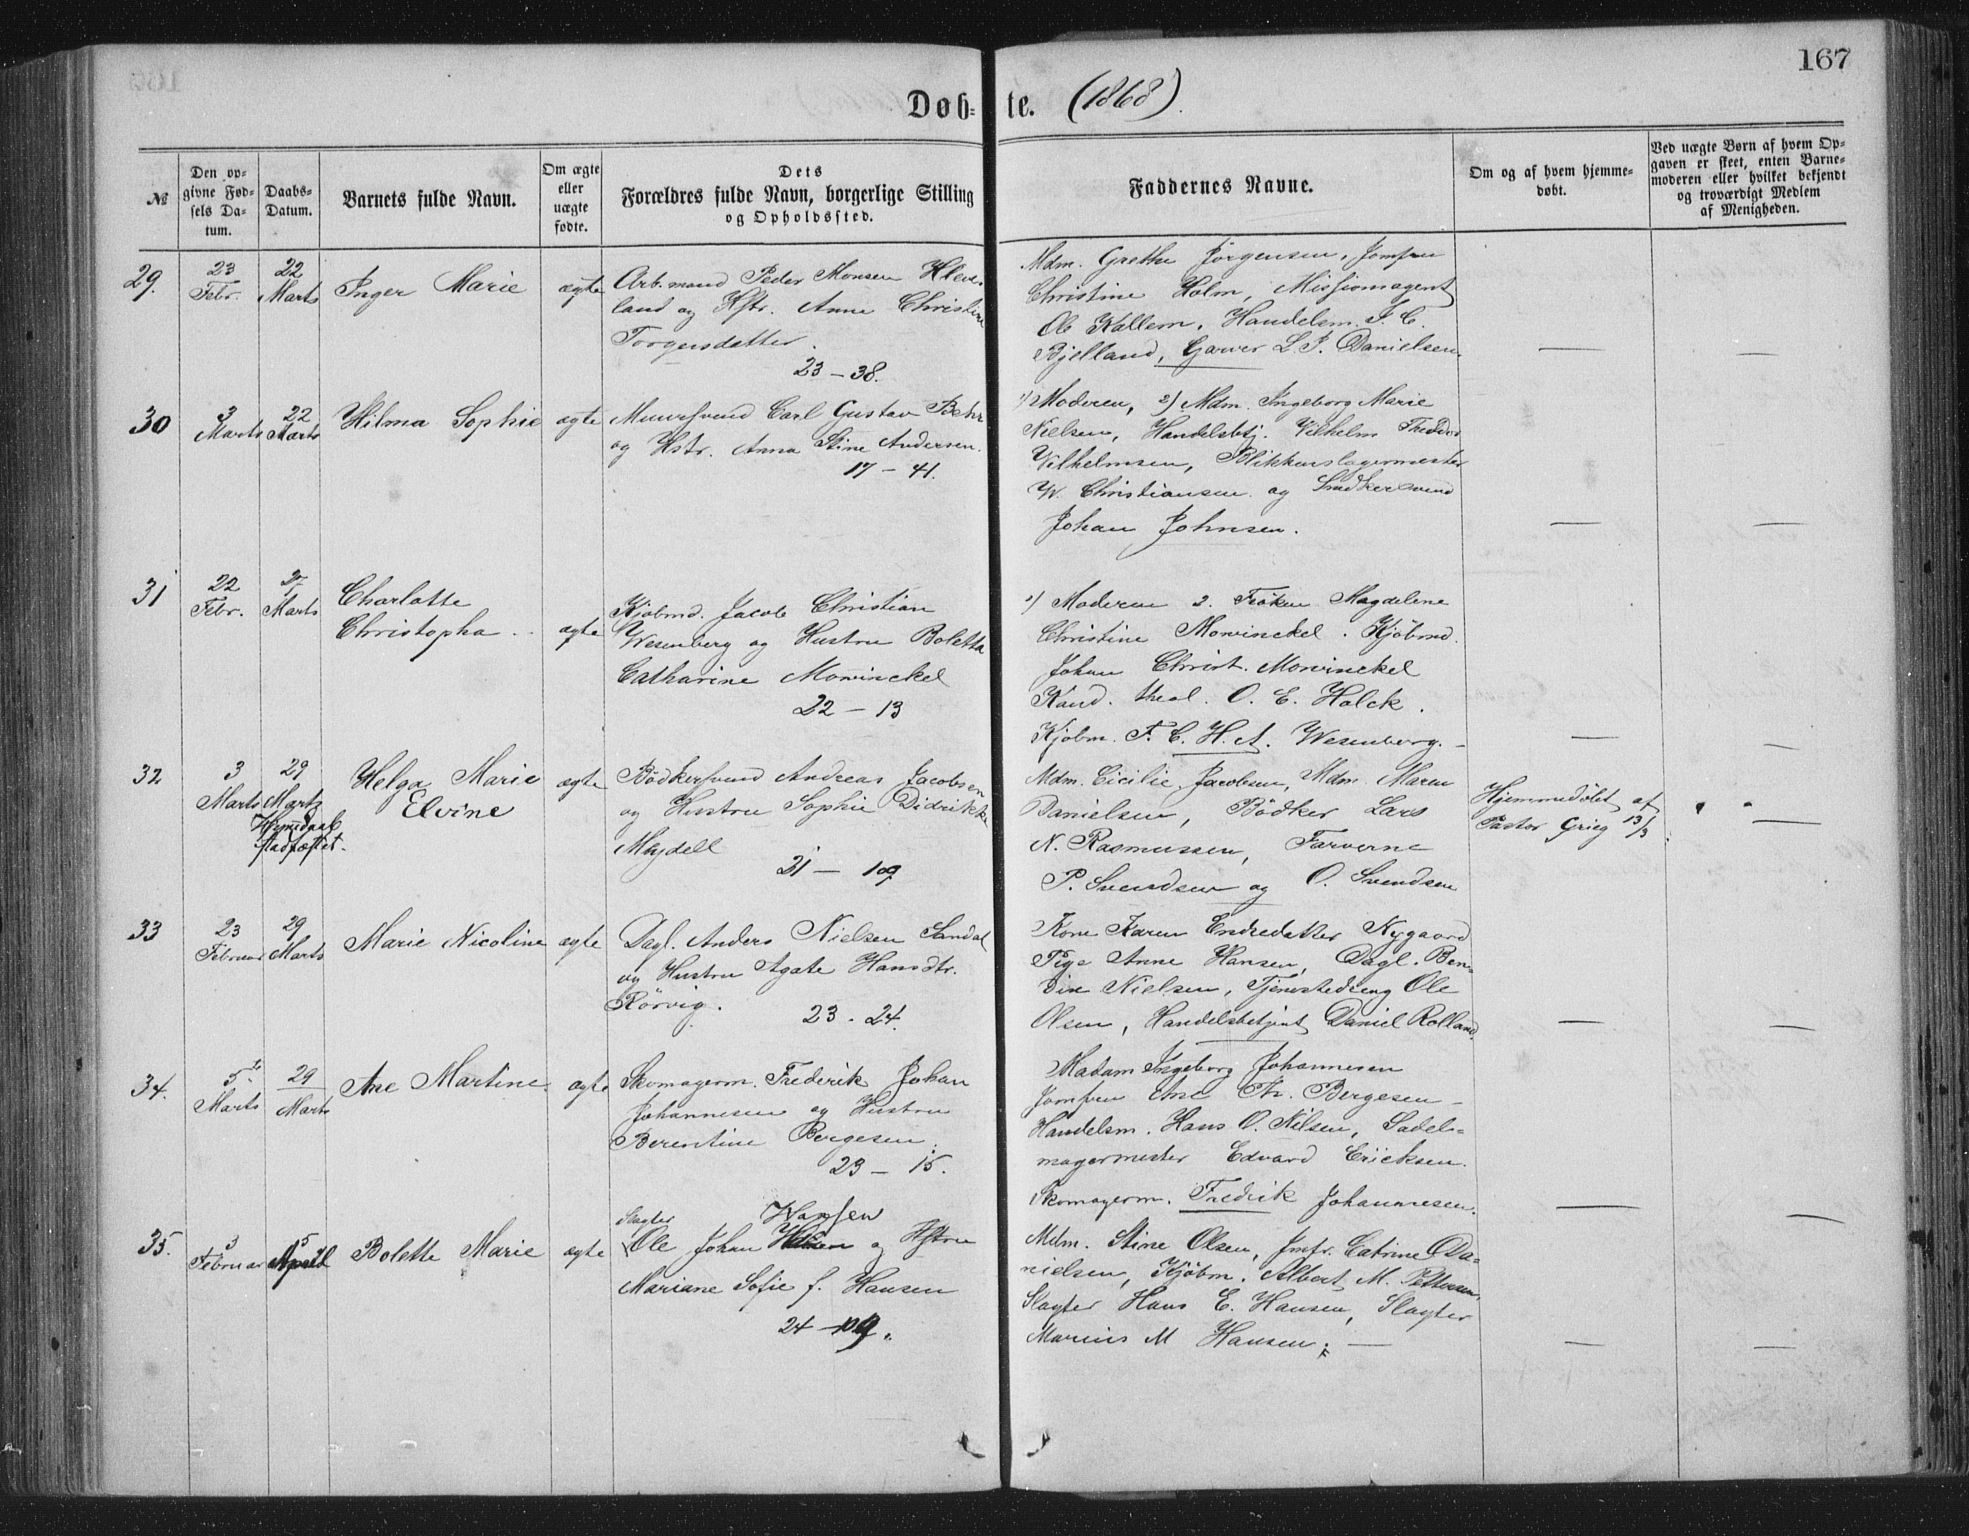 167
Døb- te. (1868).
№
Den op-
givne Fød-
sels Da-
tum.
Daabs-
Datum.
Barnets fulde Navn.
Om ægte
eller
uægte
fødte.
Dets
Forældres fulde Navn, borgerlige Stilling
og Opholdssted.
Faddernes Navne.
Om og af hvem hjemme-
døbt.
Ved uægte Børn af hvem Op-
gaven er skeet, enten Barne-
moderen eller hvilket bekjendt
og troværdigt Medlem
af Menigheden.
29.
23
Febr.
22
Marts
Inger Marie
ægte
Arb.mand Peder Monsen
land og Hstr. Anne Christine
Torgersdatter.
23 – 38.
Mdm. Grethe Jørgensen, Jomfru
Christine Holm, Missionsagent
Ole Kallem, Handelsm. T. C.
Bjelland, Garver L. P. Danielsen.
—
—
30
3
Marts
22
Marts
Hilma Sophie
ægte
Muursvend Carl Gustav Behr
og Hstr. Anna Stine Andersen.
17 – 41.
1) Moderen, 2) Mdm. Ingeborg Marie
Nielsen, Handelsbtj. Vilhelm Theodor
Vilhelmsen, Blikkenslagermester
W. Christiansen og Snedkersvend
Johan Johnsen.
—
—
31
22
Febr.
27
Marts
Charlotte
Christopha
ægte
Kjøbmd. Jacob Christian
Wesenberg og Hustru Boletta
Catharine Mowinckel
22 – 13
1) Moderen 2. Frøken Magdelene
Christine Mowinckel. Kjøbmd.
Johan Christ. Mowinckel
Kand. theol. O. E. Holck.
Kjøbm. F. C. H. A. Wesenberg.
—
—
32
3
Marts
29
Marts
Hjemdaab
stadfæstet.
Helga Marie
Elvine
ægte
Bødkersvend Andreas Jacobsen
og Hustru Sophie Didrikke
Mydell
21 – 109
Mdm. Cicilie Jacobsen, Mdm. Maren
Danielsen, Bødker Lars
N. Rasmussen, Farverne
P. Svendsen og O. Svendsen
Hjemmedøbt af
Pastor Grieg 13/3
—
33
23
Februar
29
Marts
Marie Nicoline
ægte
Dagl. Anders Nielsen Sandal
og Hustru Agate Hansdtr.
Rörvig.
23 - 24.
Kone Karen Endredatter Nygaard
Pige Anne Hansen, Dagl. Ben-
dix Nielsen, Tjenestedreng Ole
Olsen, Handelsbetjent Daniel Rolland.
—
—
34.
5te
Marts
29
Marts
Ane Martine
ægte
Skomagerm. Frederik Johan
Johannesen og Hustru
Berentine Bergesen.
23 – 15.
Madam Ingeborg Johannesen
Jomfru Ane Th. Bergesen –
Handelsm. Hans O. Nilsen, Sadel-
magermester Edvard Ericksen.
Skomagerm. Fredrik Johannesen.
—
—
35.
3
Februar
5
April
Bolette Marie
ægte
Slagter Hansen
Ole Johan og Hstru
Mariane Sofie f. Hansen
24 – 109.
Mdm. Stine Olsen, Jmfr. Catrine Da-
nielsen, Kjøbm. Albert M. Pettersen,
Slagter Hans E. Hansen, Slagter
Marius M Hansen. —
—
—